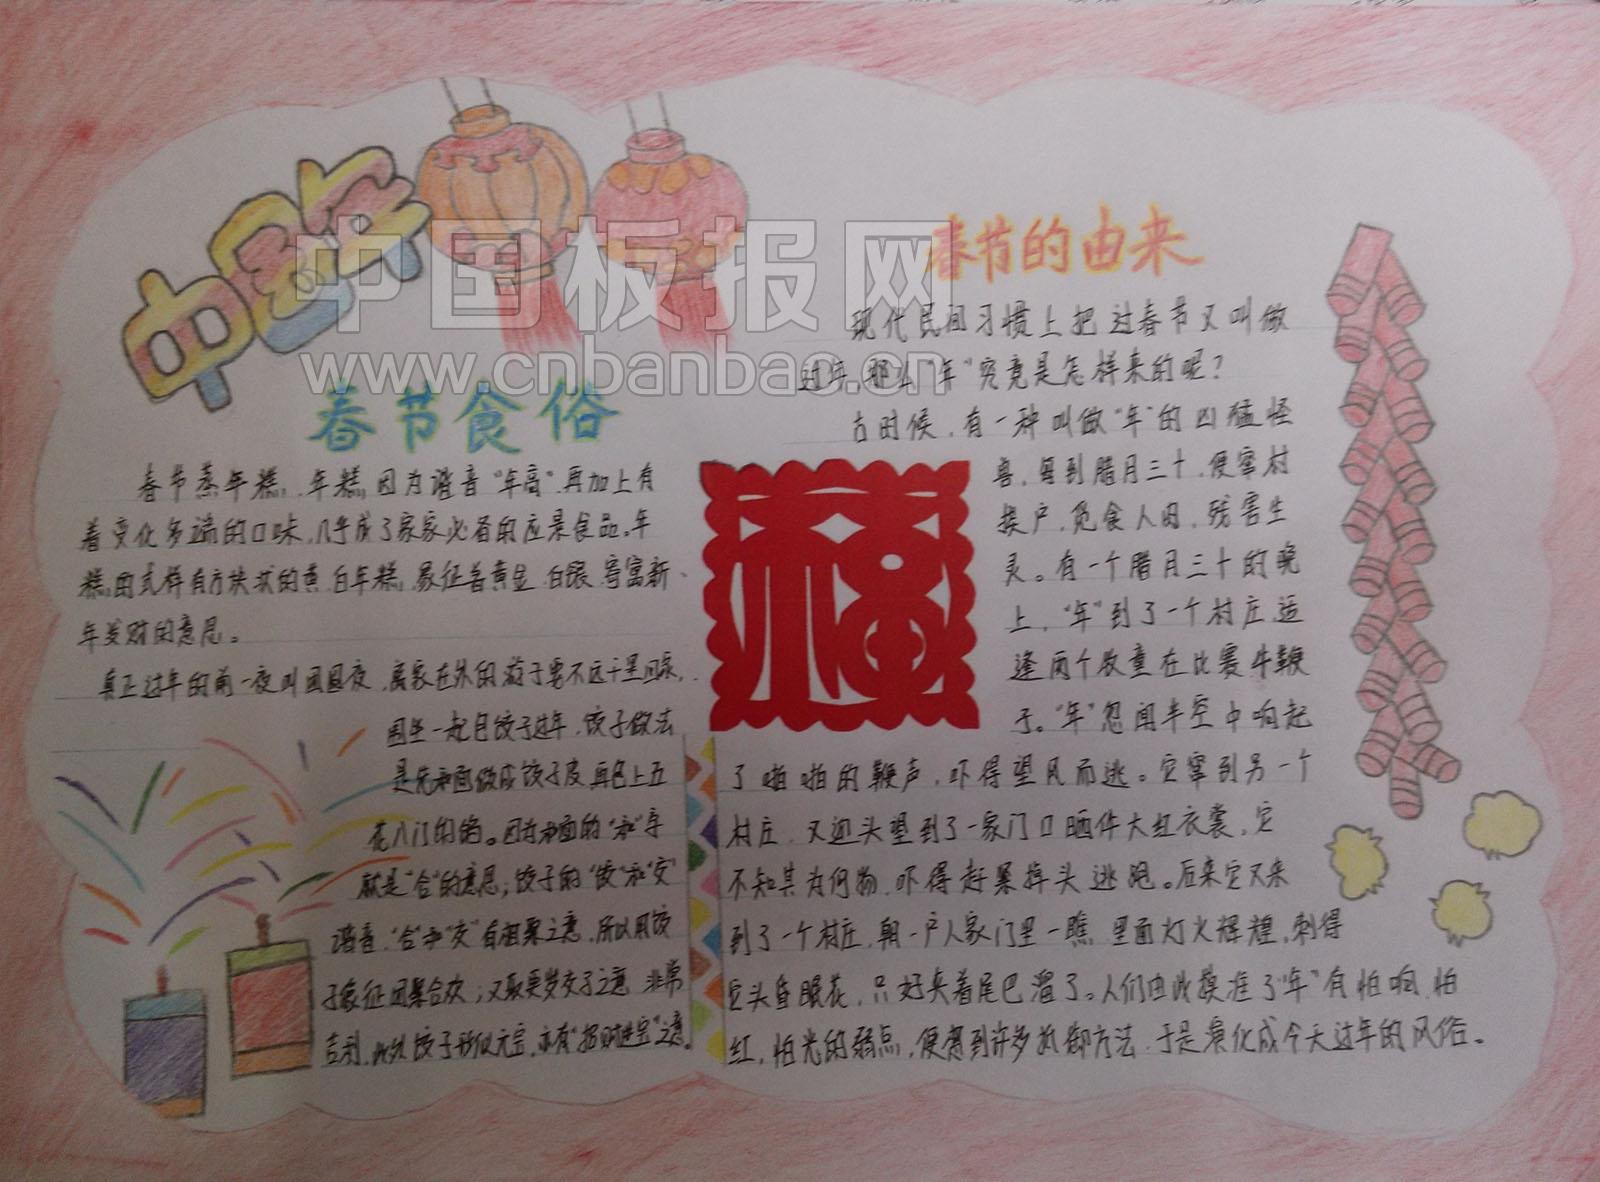 中国年
中国板报网
www.cnbanbao.cn
春节食俗
春节蒸年糕,年糕因为谐音“年高”再加上有
着变化多端的口味,几乎成了家家必备的应景食品。年
糕的式样有方块状的黄、白年糕,象征着黄金、白银,寄寓新
年发财的意思。
真正过年的前一夜叫团圆夜,离家在外的游子要不远千里回家,
围坐一起包饺子过年,饺子做法
是先和面做成饺子皮再包上五
花八门的馅。因为和面的“和”字
就是“合”的意思;饺子的“饺”和“交”
谐音,“合”和“交”有相聚之意,所以用饺
子象征团聚合欢;又取更岁交子之意,非常
吉利,此外饺子形似元宝,亦有“招财进宝”之意。
春节的由来
现代民间习惯上把过春节又叫做
过年,那么“年”究竟是怎样来的呢?
古时候,有一种叫做“年”的凶猛怪
兽,每到腊月三十,便窜村
挨户,觅食人肉,残害生
灵。有一个腊月三十的晚
上,“年”到了一个村庄,适
逢两个牧童在比赛牛鞭
子。“年”忽闻半空中响起
福
了啪啪的鞭声,吓得望风而逃。它窜到另一个
村庄,又迎头望到了一家门口晒件大红衣裳,它
不知其为何物,吓得赶紧掉头逃跑。后来它又来
到了一个村庄,朝一户人家门里一瞧,里面灯火辉煌,刺得
它头昏眼花,只好夹着尾巴溜了。人们由此摸准了“年”有怕响,怕
红,怕光的弱点,便想到许多抵御方法,于是演化成今天过年的风俗。